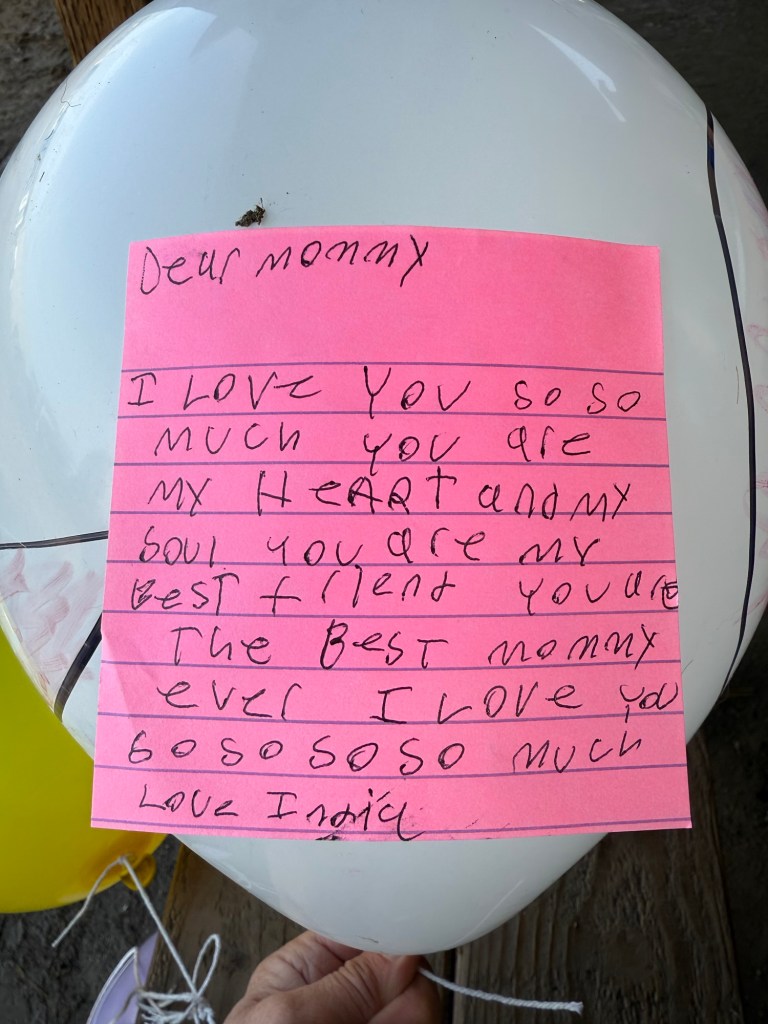 Dear mommy
I LOVE YOU so so
much you are
my HeART and my
soul you are my
BesT friend you are
The BesT mommy
ever I LOVE you
so so so so much
Love India